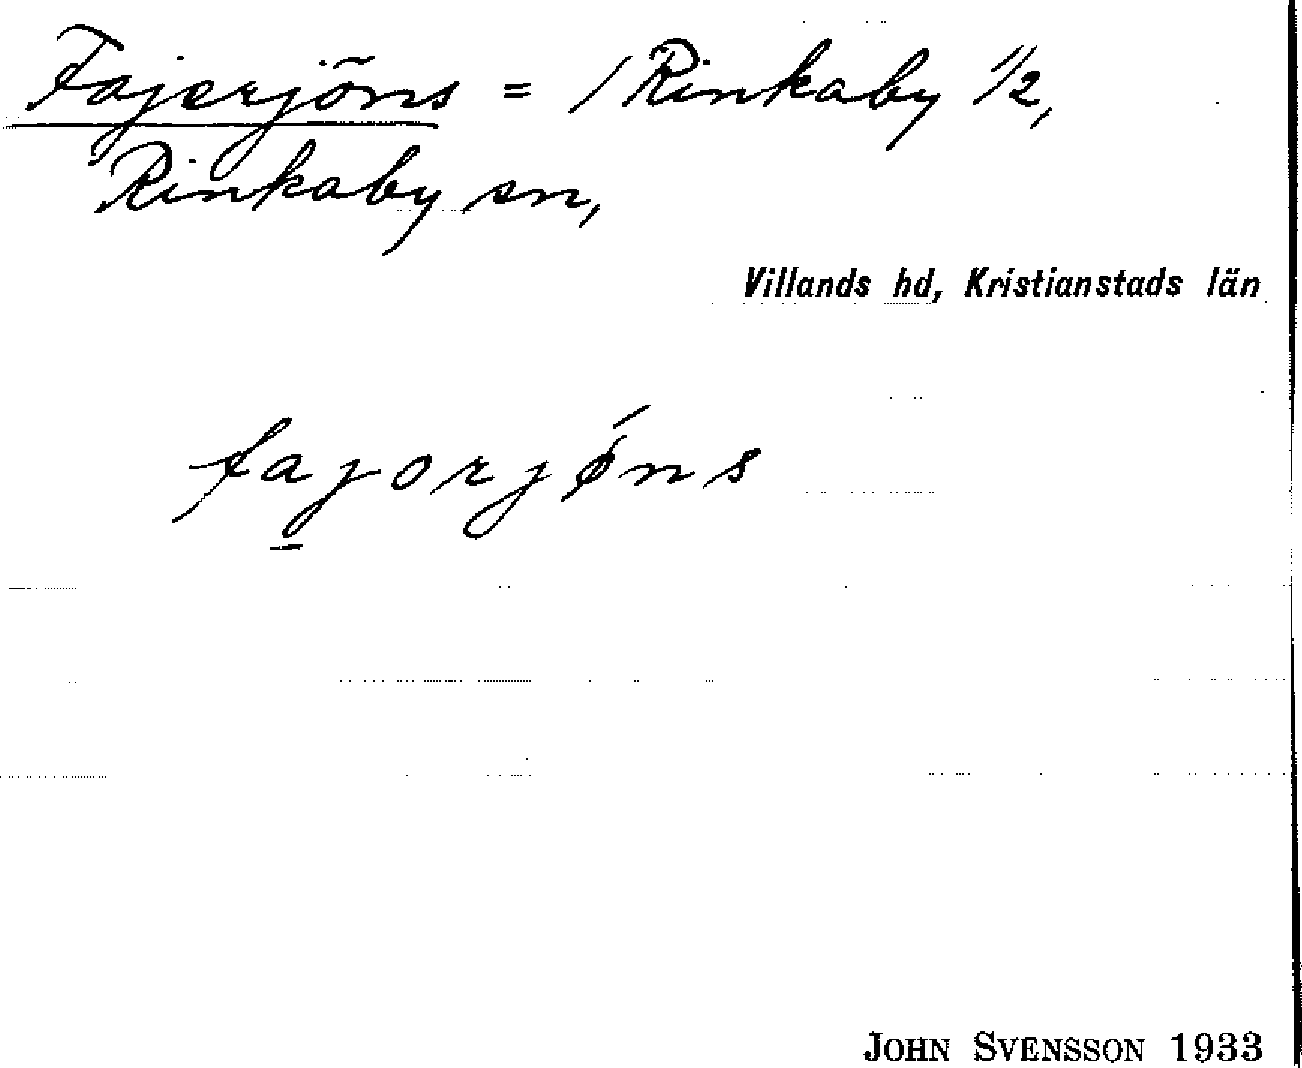 Fajerjöns = / Rinkaby 1/2,
Rinkaby sn,
Villands hd, Kristianstads län
fajorjøns
JOHN SVENSSON 1933